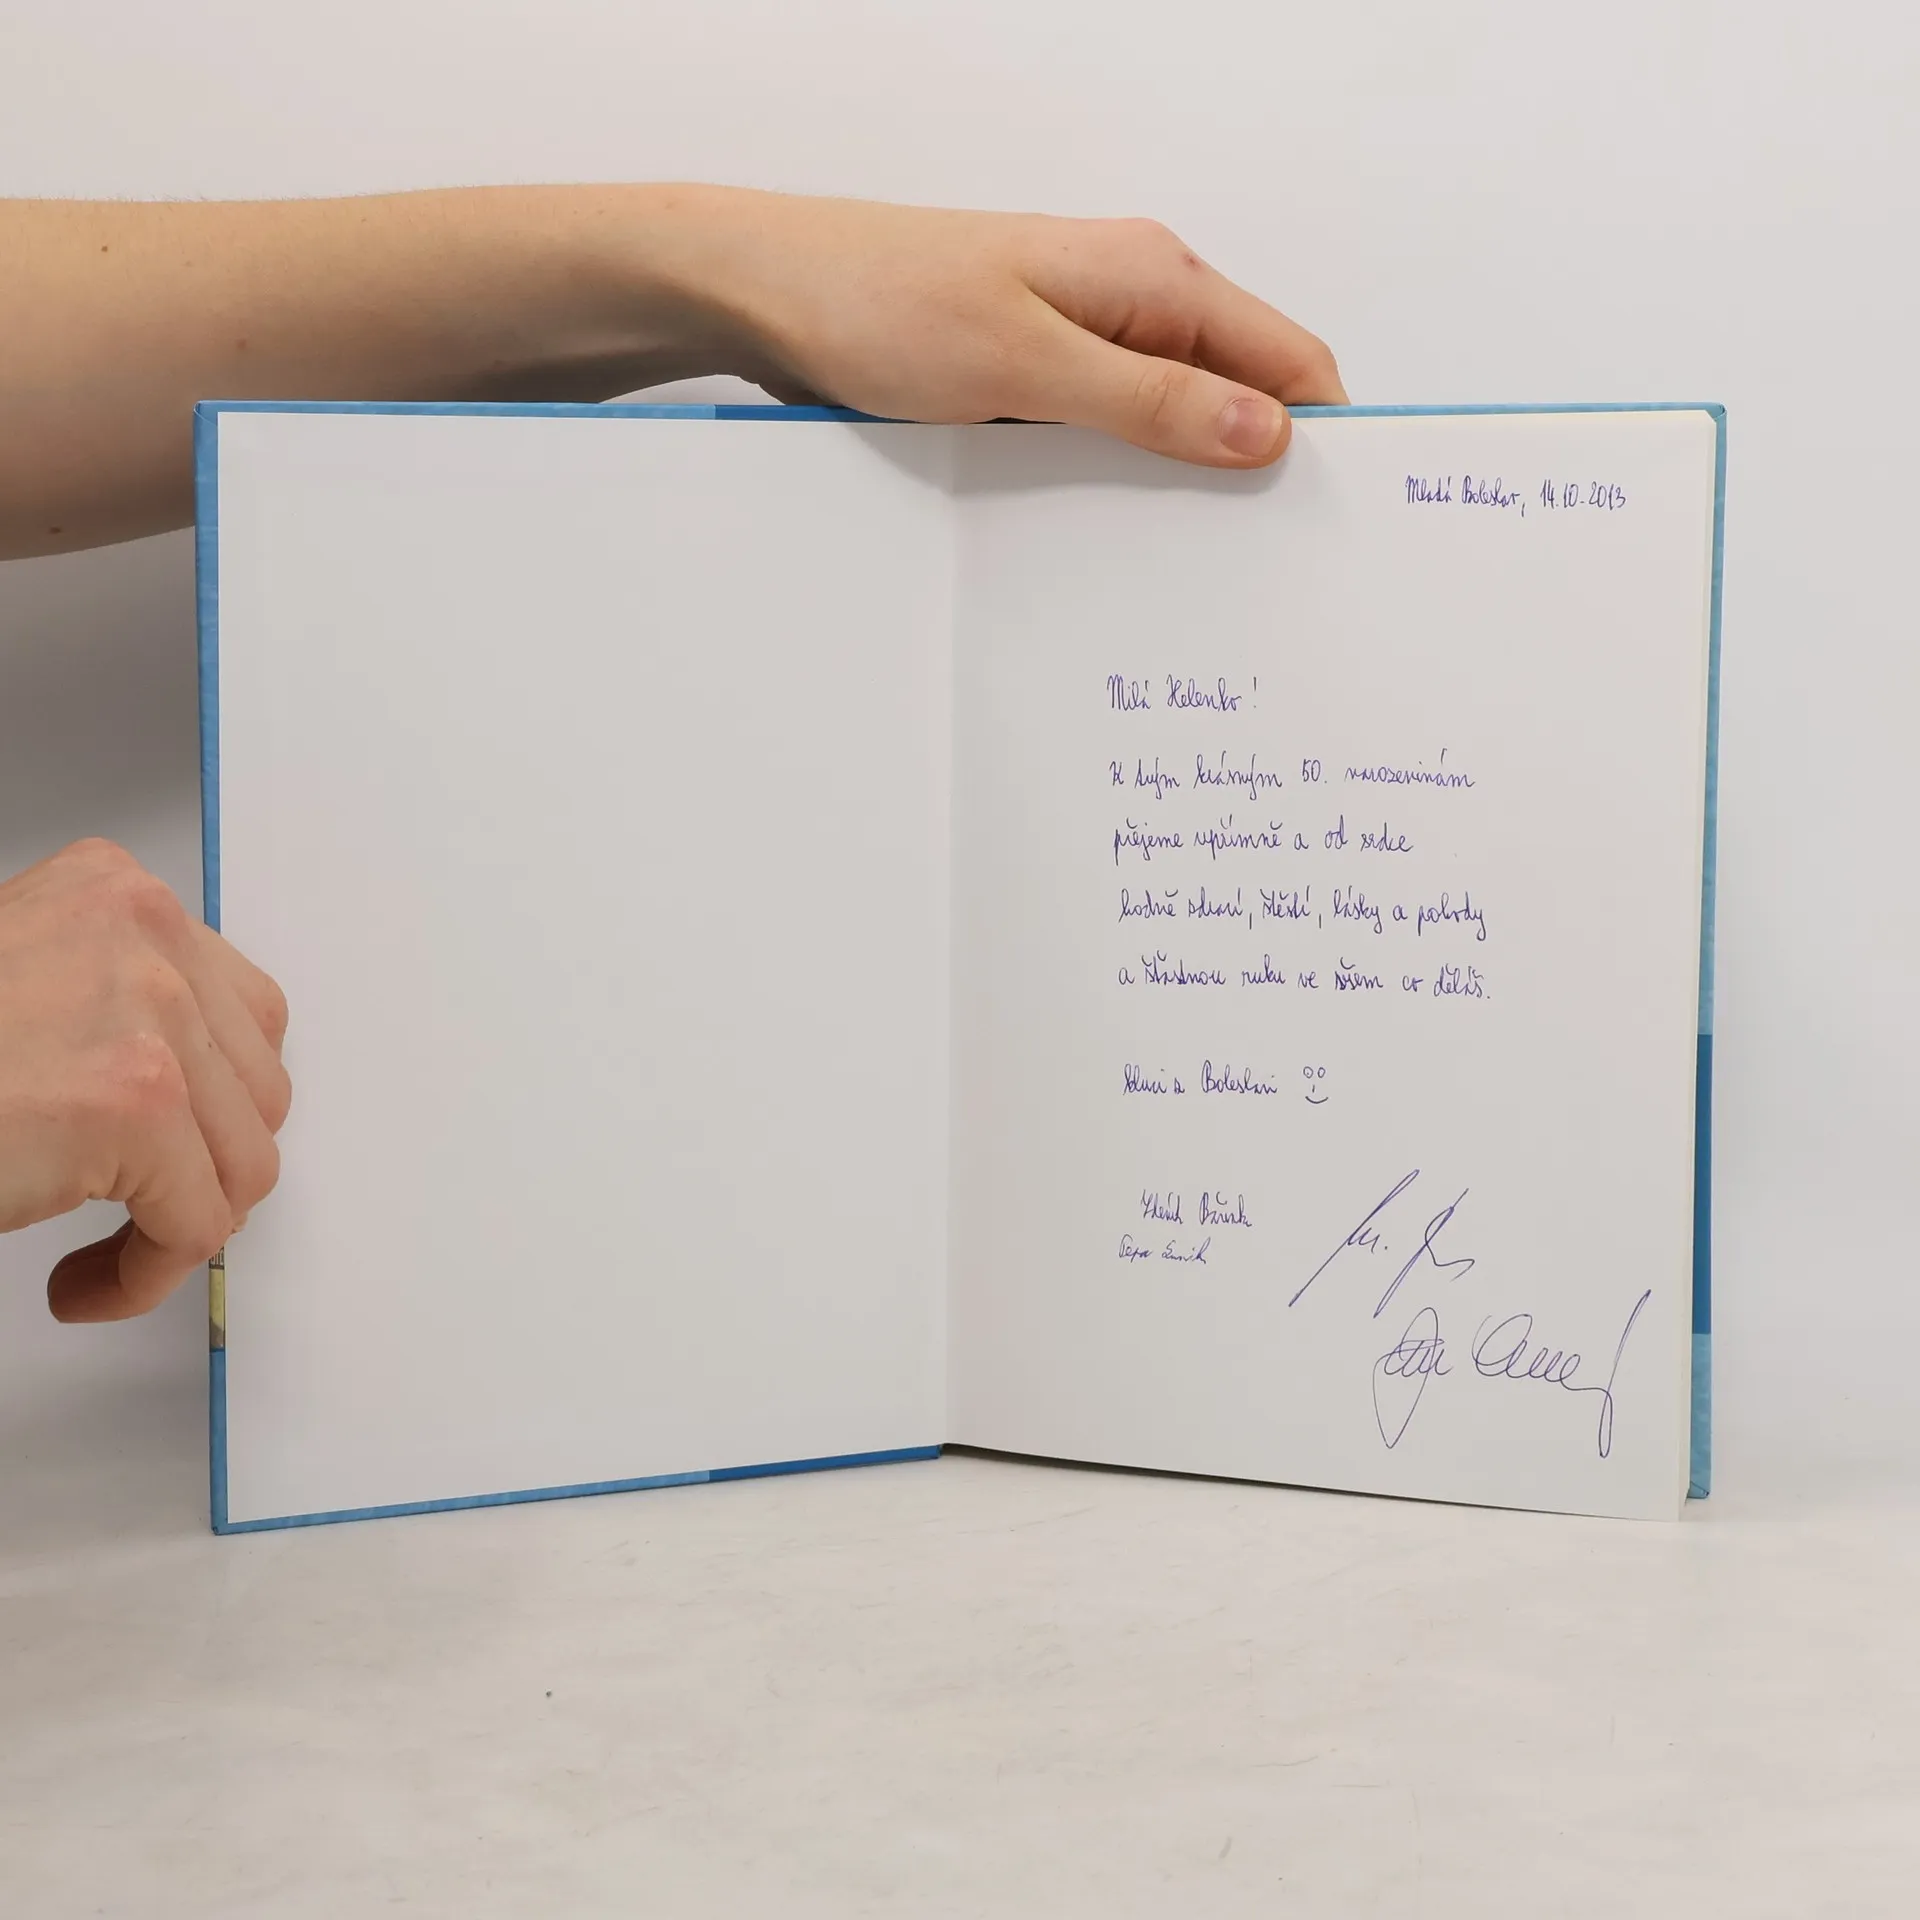 Mladá Boleslav, 14.10.2013
Milá Helenko!
K tvým krásným 50. narozeninám
přejeme upřímně a od srdce
hodně zdraví, štěstí, lásky a pohody
a šťastnou ruku ve všem co děláš.
kluci z Boleslavi
Zdeněk